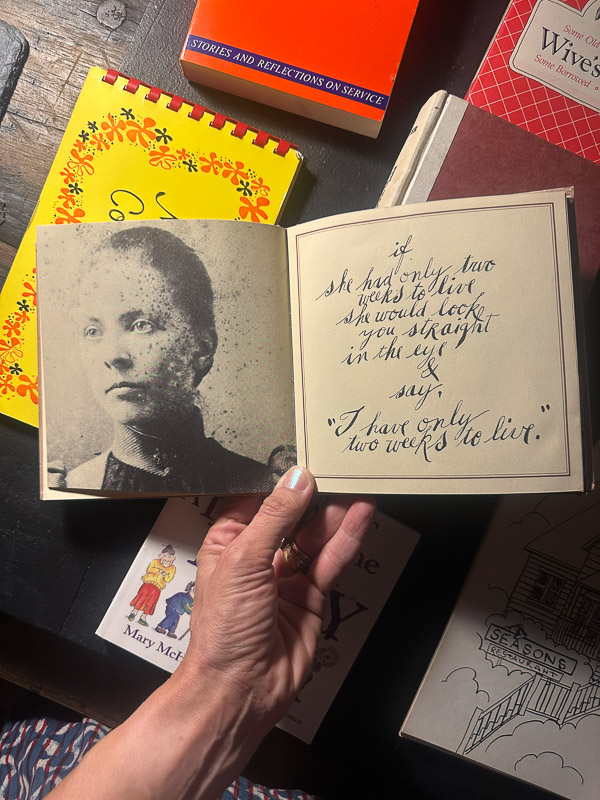 STORIES AND REFLECTIONS ON SERVICE
Some Old
Wive's
Some Borrowed
if
she had only two
weeks to live
she would look
you straight
in the eye
&
say,
"I have only
two weeks to live."
Mary
SEASONS
RESTAURANT